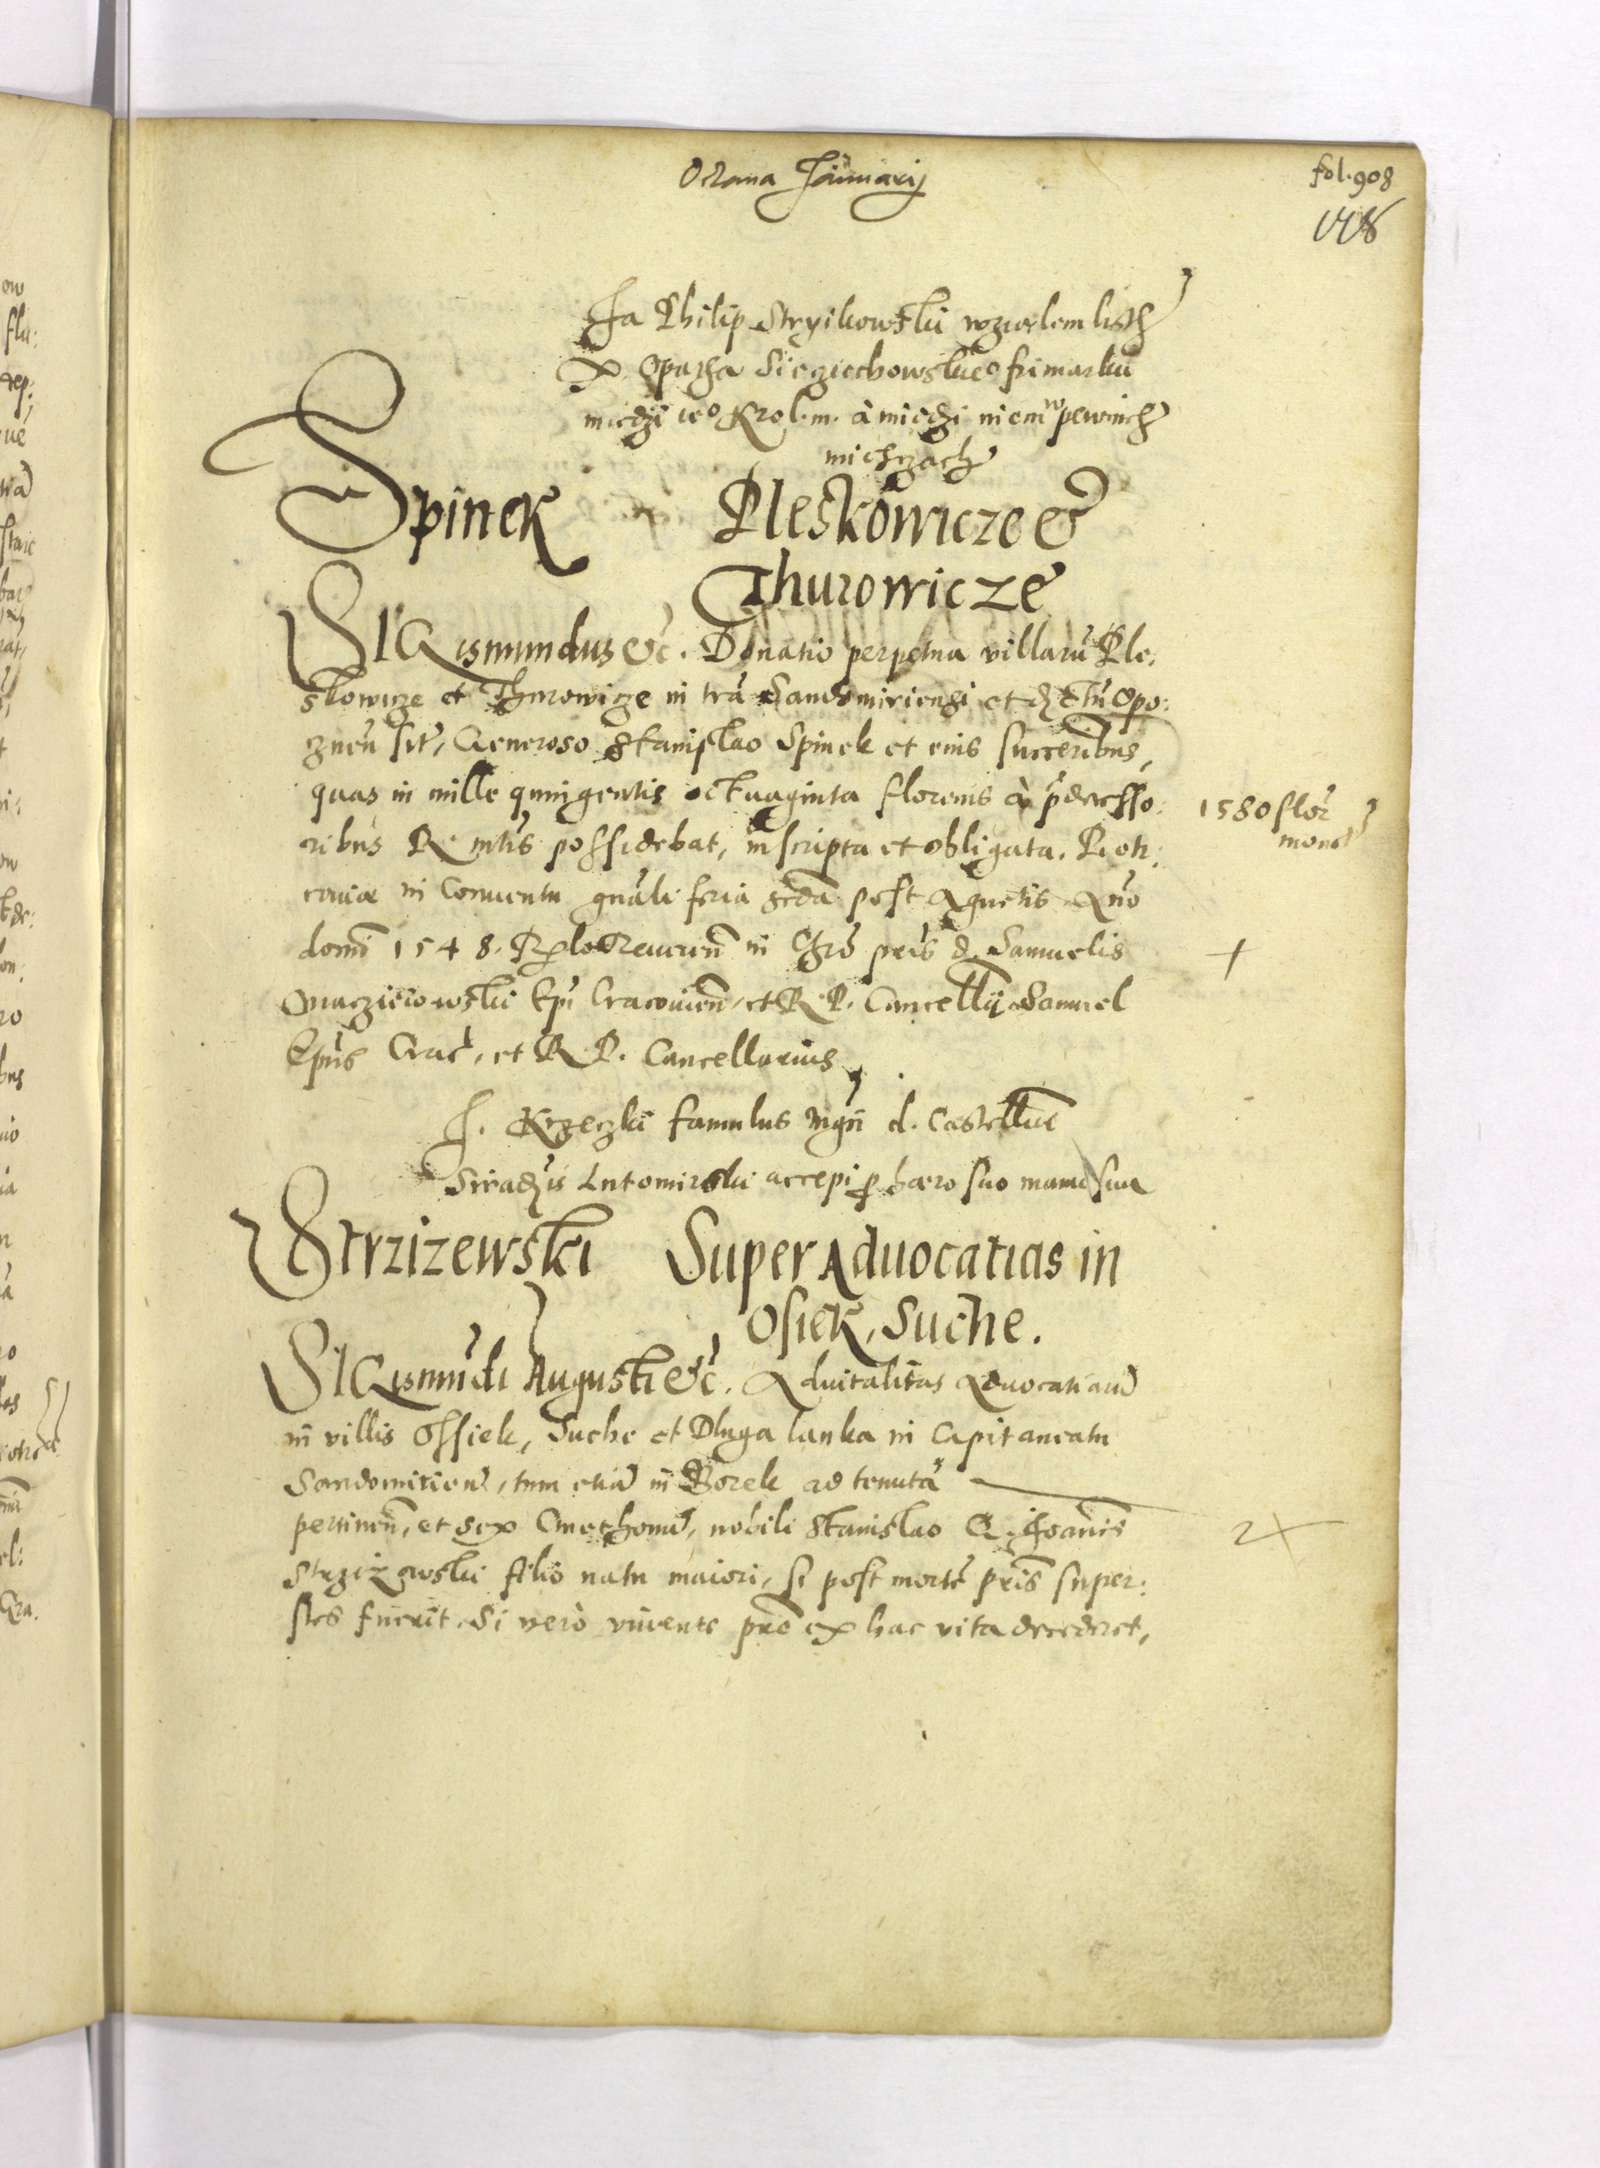 Octaua Januarij
fol. 908
Ja Philip Stryikowski wzialem listh
X. Opatha Sieciechowskieo frimarku
miedzi ieo Krol. m. à miedzi niem w pewnich
mieszczach
Spinek Pleskowicze &
Thurowicze
SIGismundus &c. Donatio perpetua villarũ Ple,
skowicze et Thurowicze in trã Sandomiriensi et Opo:
cznẽn sit, Generoso Stanislao Spinek et eius succeribus,
quas in mille quingentis octuaginta florenis à p̃decesso:
1580 flor
monet
ribus R. mtis possidebat, inscripta et obligata. Piotr:
couiæ in Conuentu gnãli feria scđa post Agnetis Año
domi 1548. Rẽlo Reueren in Chro pris d. Samuelis
Maczieiowski Epi Cracouien, et R. P. Cancellij Samuel
Epus Crac, et R. P. Cancellarius
J. Krzeczki famulus Mgci d. Castellani
Siradz Lutomirski accepi p haero suo manu sua
Strzizewski Super Aduocatias in
Osiek, Suche.
SIGismũdi Augusti &c. Aduitalitas Aduocatiarũ
in villis Ossiek, Suche et Dluga lanka in Capitaneatu
Sandomirien, tum etiã in Borek ad tenutã
pertinen, et sex Cmethonũ, nobili Stanislao G. Joannis
Strzizowski filio natu maiori, si post mortẽ pris super:
stes fuerit. Si verò viuente pre ex hac vita decederet,